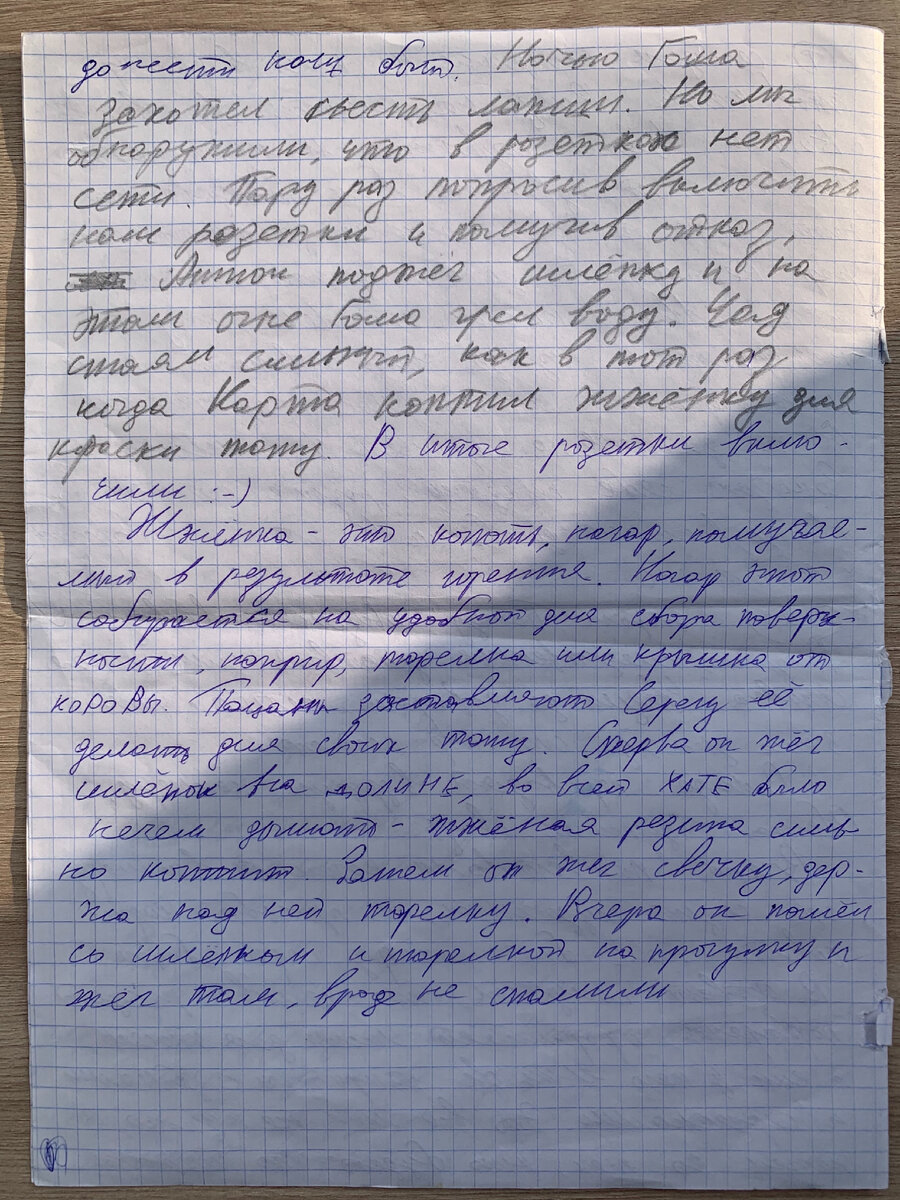 донести наш быт. Ночью Гоша
Захотел съесть лапши. Но мы
обнаружили, что в розетках нет
сети. Пару раз попросив включить
нам розетки и получив отказ,
Антон поджёг шлёпку и на
этом огне Гоша грел воду. Чад
стоял сильный, как в тот раз
когда Карта коптил жжёнку для
краски тату. В итоге розетки вклю-
чили :-)
Жжёнка - это копоть, нагар, получае-
мый в результате горения. Нагар этот
собирается на удобной для сбора поверх-
ности, наприр, тарелка или крышка от
коровы. Пацаны заставляют Серегу её
делать для своих тату. Сперва он жёг
шлёпок на ДОЛИНЕ, во всей ХАТЕ было
нечем дышать - жжёная резина силь-
но коптит. Затем он жег свечку, дер-
жа над ней тарелку. Вчера он пошёл
со шлёпком и тарелкой на прогулку и
жёг там, врод не спалили